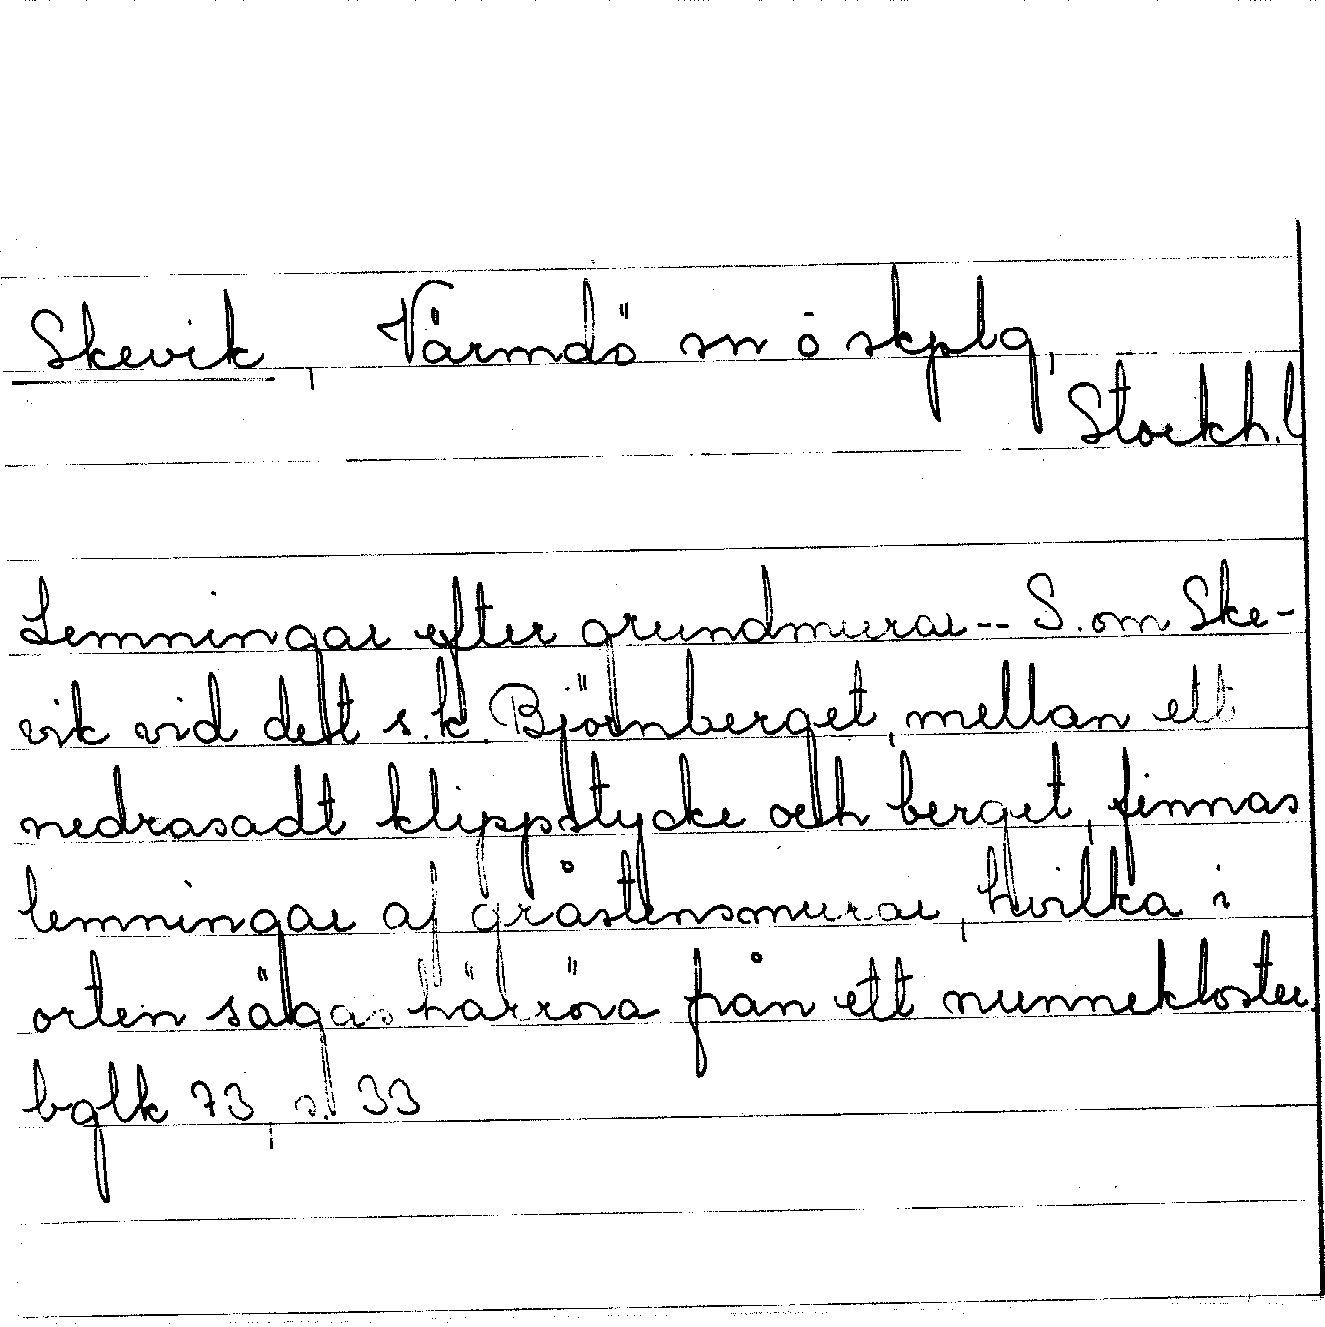 Skevik, Värmdö sn o skplg,
Stockh. l
Lemningar efter grundmurar -- S. om Ske-
vik vid delt s.k. Björnberget, mellan ett
nedrasadt klippstycke och berget, finnas
lemningar af gråstensmurar, hvilka i
orten sägas härröra från ett nunnekloster.
bglk 73, s. 33